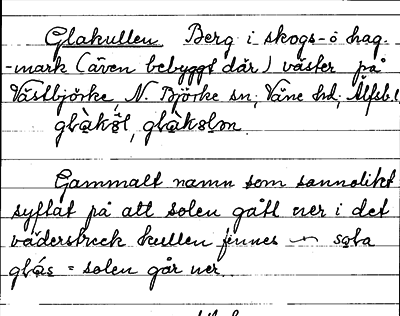 Glakullen Berg i skogs- o hag-
-mark (även bebyggt där) väster på
Västbjörke, N. Björke sn, Väne hd, Älfsb.l
glàkəl, glàkələn.
Gammalt namn som sannolikt
syftat på att solen gått ner i det
väderstreck kullen finnes — sola
glás = solen går ner.